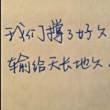 我们撑了好久
输给天长地久